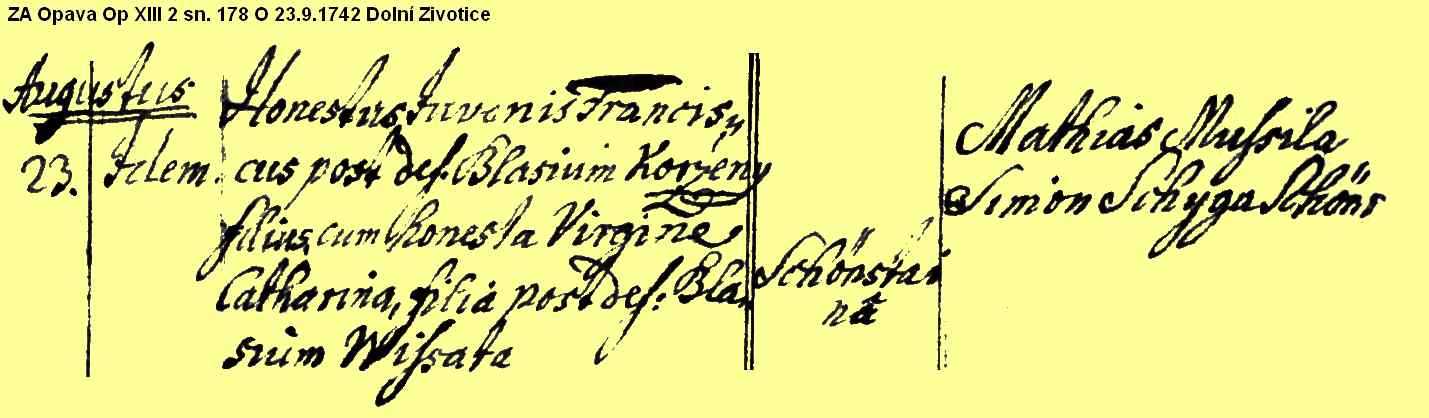 ZA Opava Op XIII 2 sn. 178 O 23.9.1742 Dolní Zivotice
Augustus
23. Idem
Honestus Iuvenis Francis,,
cus post def. Blasium Korzeny
filius, cum honesta Virgine
Catharina, filia post def: Bla,
sium Wissata
Schönstai
nâ
Mathias Mussila
Simon Schyga Schöns